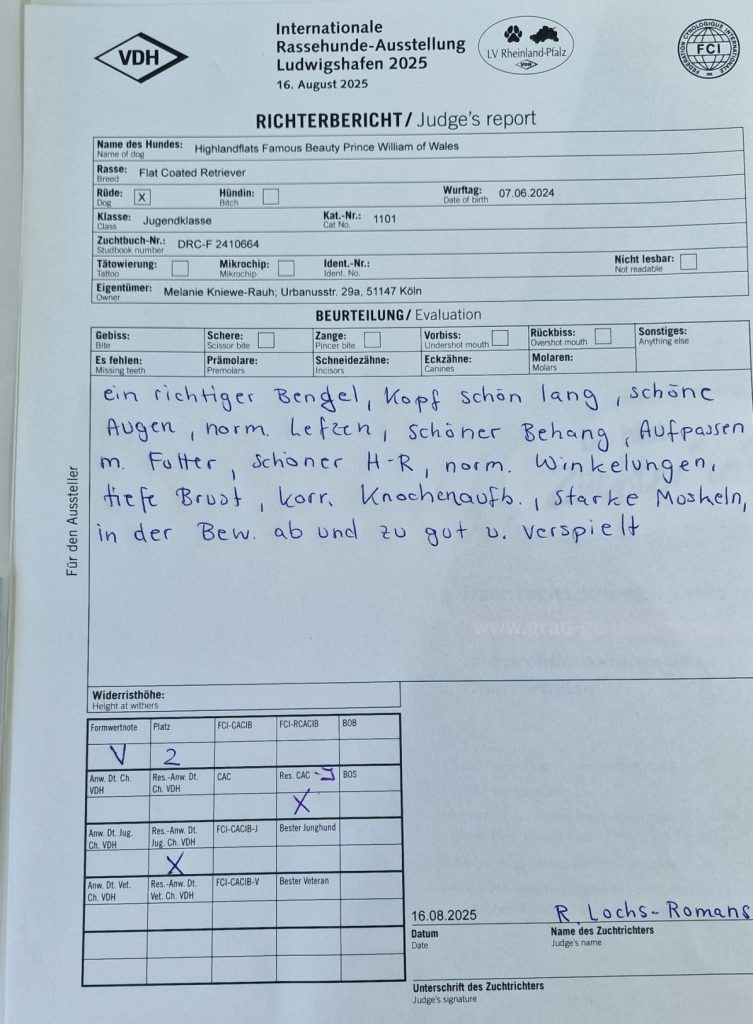 VDH
Internationale
Rassehunde-Ausstellung
Ludwigshafen 2025
16. August 2025
LV Rheinland-Pfalz
VDH
FEDERATION CYNOLOGIQUE INTERNATIONALE
FCI
RICHTERBERICHT/ Judge's report
Name des Hundes: Highlandflats Famous Beauty Prince William of Wales
Name of dog
Rasse: Flat Coated Retriever
Breed
Rüde: X Hündin: Wurftag: 07.06.2024
Dog Bitch Date of birth
Klasse: Jugendklasse Kat.-Nr.: 1101
Class Cat No.
Zuchtbuch-Nr.: DRC-F 2410664
Studbook number
Tätowierung: Mikrochip: Ident.-Nr.: Nicht lesbar:
Tattoo Mikrochip Ident. No. Not readable
Eigentümer: Melanie Kniewe-Rauh; Urbanusstr. 29a, 51147 Köln
Owner
BEURTEILUNG/ Evaluation
Gebiss: Schere: Zange: Vorbiss: Rückbiss: Sonstiges:
Bite Scissor bite Pincer bite Undershot mouth Overshot mouth Anything else
Es fehlen: Prämolare: Schneidezähne: Eckzähne: Molaren:
Missing teeth Premolars Incisors Canines Molars
ein richtiger Bengel, Kopf schön lang, schöne
Augen, norm. Lefzen, schöner Behang, Aufpassen
m. Futter, schöner H-R, norm. Winkelungen,
tiefe Brust, korr. Knochenaufb., starke Muskeln,
in der Bew. ab und zu gut u. verspielt
Für den Aussteller
Widerristhöhe:
Height at withers
Formwertnote Platz FCI-CACIB FCI-RCACIB BOB
V 2
Anw. Dt. Ch. Res.-Anw. Dt. CAC Res. CAC -J BOS
VDH Ch. VDH
X
Anw. Dt. Jug. Res.-Anw. Dt. FCI-CACIB-J Bester Junghund
Ch. VDH Jug. Ch. VDH
X
Anw. Dt. Vet. Res.-Anw. Dt. FCI-CACIB-V Bester Veteran
Ch. VDH Vet. Ch. VDH
16.08.2025 R. Lochs-Romans
Datum Name des Zuchtrichters
Date Judge's name
Unterschrift des Zuchtrichters
Judge's signature